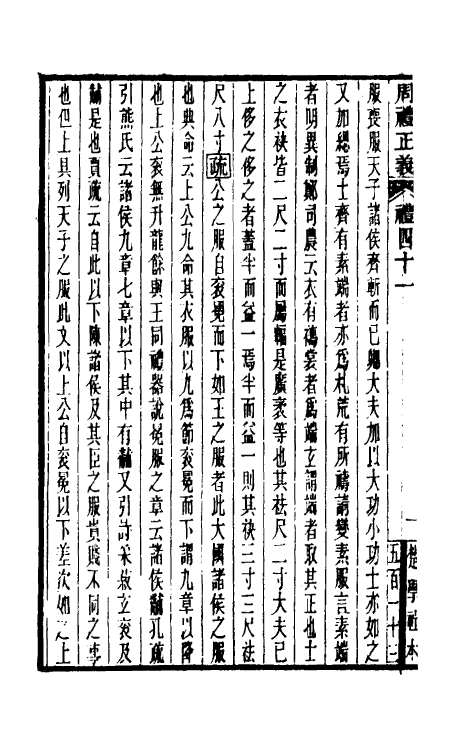 周禮正義 禮四十一 一 楚學社本 五百一十三
服喪服天子諸侯齊斬而已卿大夫加以大功小功士亦如之
又加緦焉士齊有素端者亦爲札荒有所禱請變素服言素端
者明異制鄭司農云衣有𥜗裳者爲端玄謂端者取其正也士
之衣袂皆二尺二寸而屬幅是廣袤等也其袪尺二寸大夫已
上侈之侈之者蓋半而益一焉半而益一則其袂三寸三尺袪
尺八寸疏公之服自袞冕而下如王之服者此大國諸侯之服
也典命云上公九命其衣服以九爲節袞冕而下謂九章以降
也上公袞無升龍餘與王同禮器說冕服之章云諸侯黼孔疏
引熊氏云諸侯九章七章以下其中有黼又引詩采菽玄袞及
黼是也賈疏云自此以下陳諸侯及其臣之服貴賤不同之事
也但上具列天子之服此文以上公自袞冕以下差次如之上